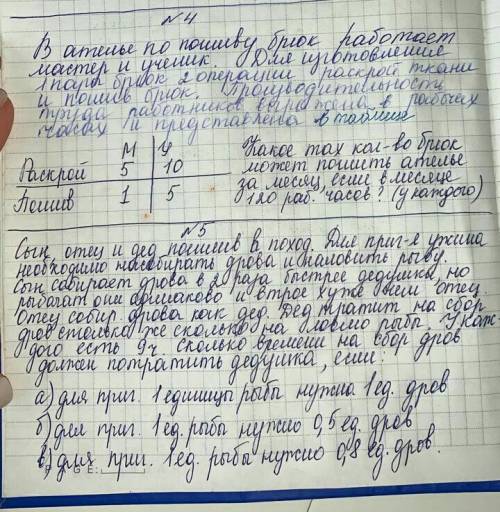 №4
В ателье по пошиву брюк работает
мастер и ученик. Для изготовления
1 пары брюк 2 операции раскрой ткани
и пошив брюк. Производительность
труда работников выражена в рабочих
часах и представлена в таблице
М У
Раскрой 5 10
Пошив 1 5
Какое max кол-во брюк
может пошить ателье
за месяц, если в месяце
120 раб. часов? (у каждого)
№5
Сын, отец и дед пошли в поход. Для приг-я ужина
необходимо насобирать дрова и наловить рыбу.
Сын собирает дрова в 2 раза быстрее дедушки, но
рыбачат они одинаково и втрое хуже чем отец.
Отец собир. дрова как дед. Дед тратит на сбор
дров столько же сколько на ловлю рыбы. У каж-
дого есть 9ч. Сколько времени на сбор дров
должен потратить дедушка, если:
а) для приг. 1 единицы рыбы нужна 1 ед. дров
б) для приг. 1 ед. рыбы нужно 0,5 ед. дров
в) для приг. 1 ед. рыбы нужно 0,8 ед. дров.